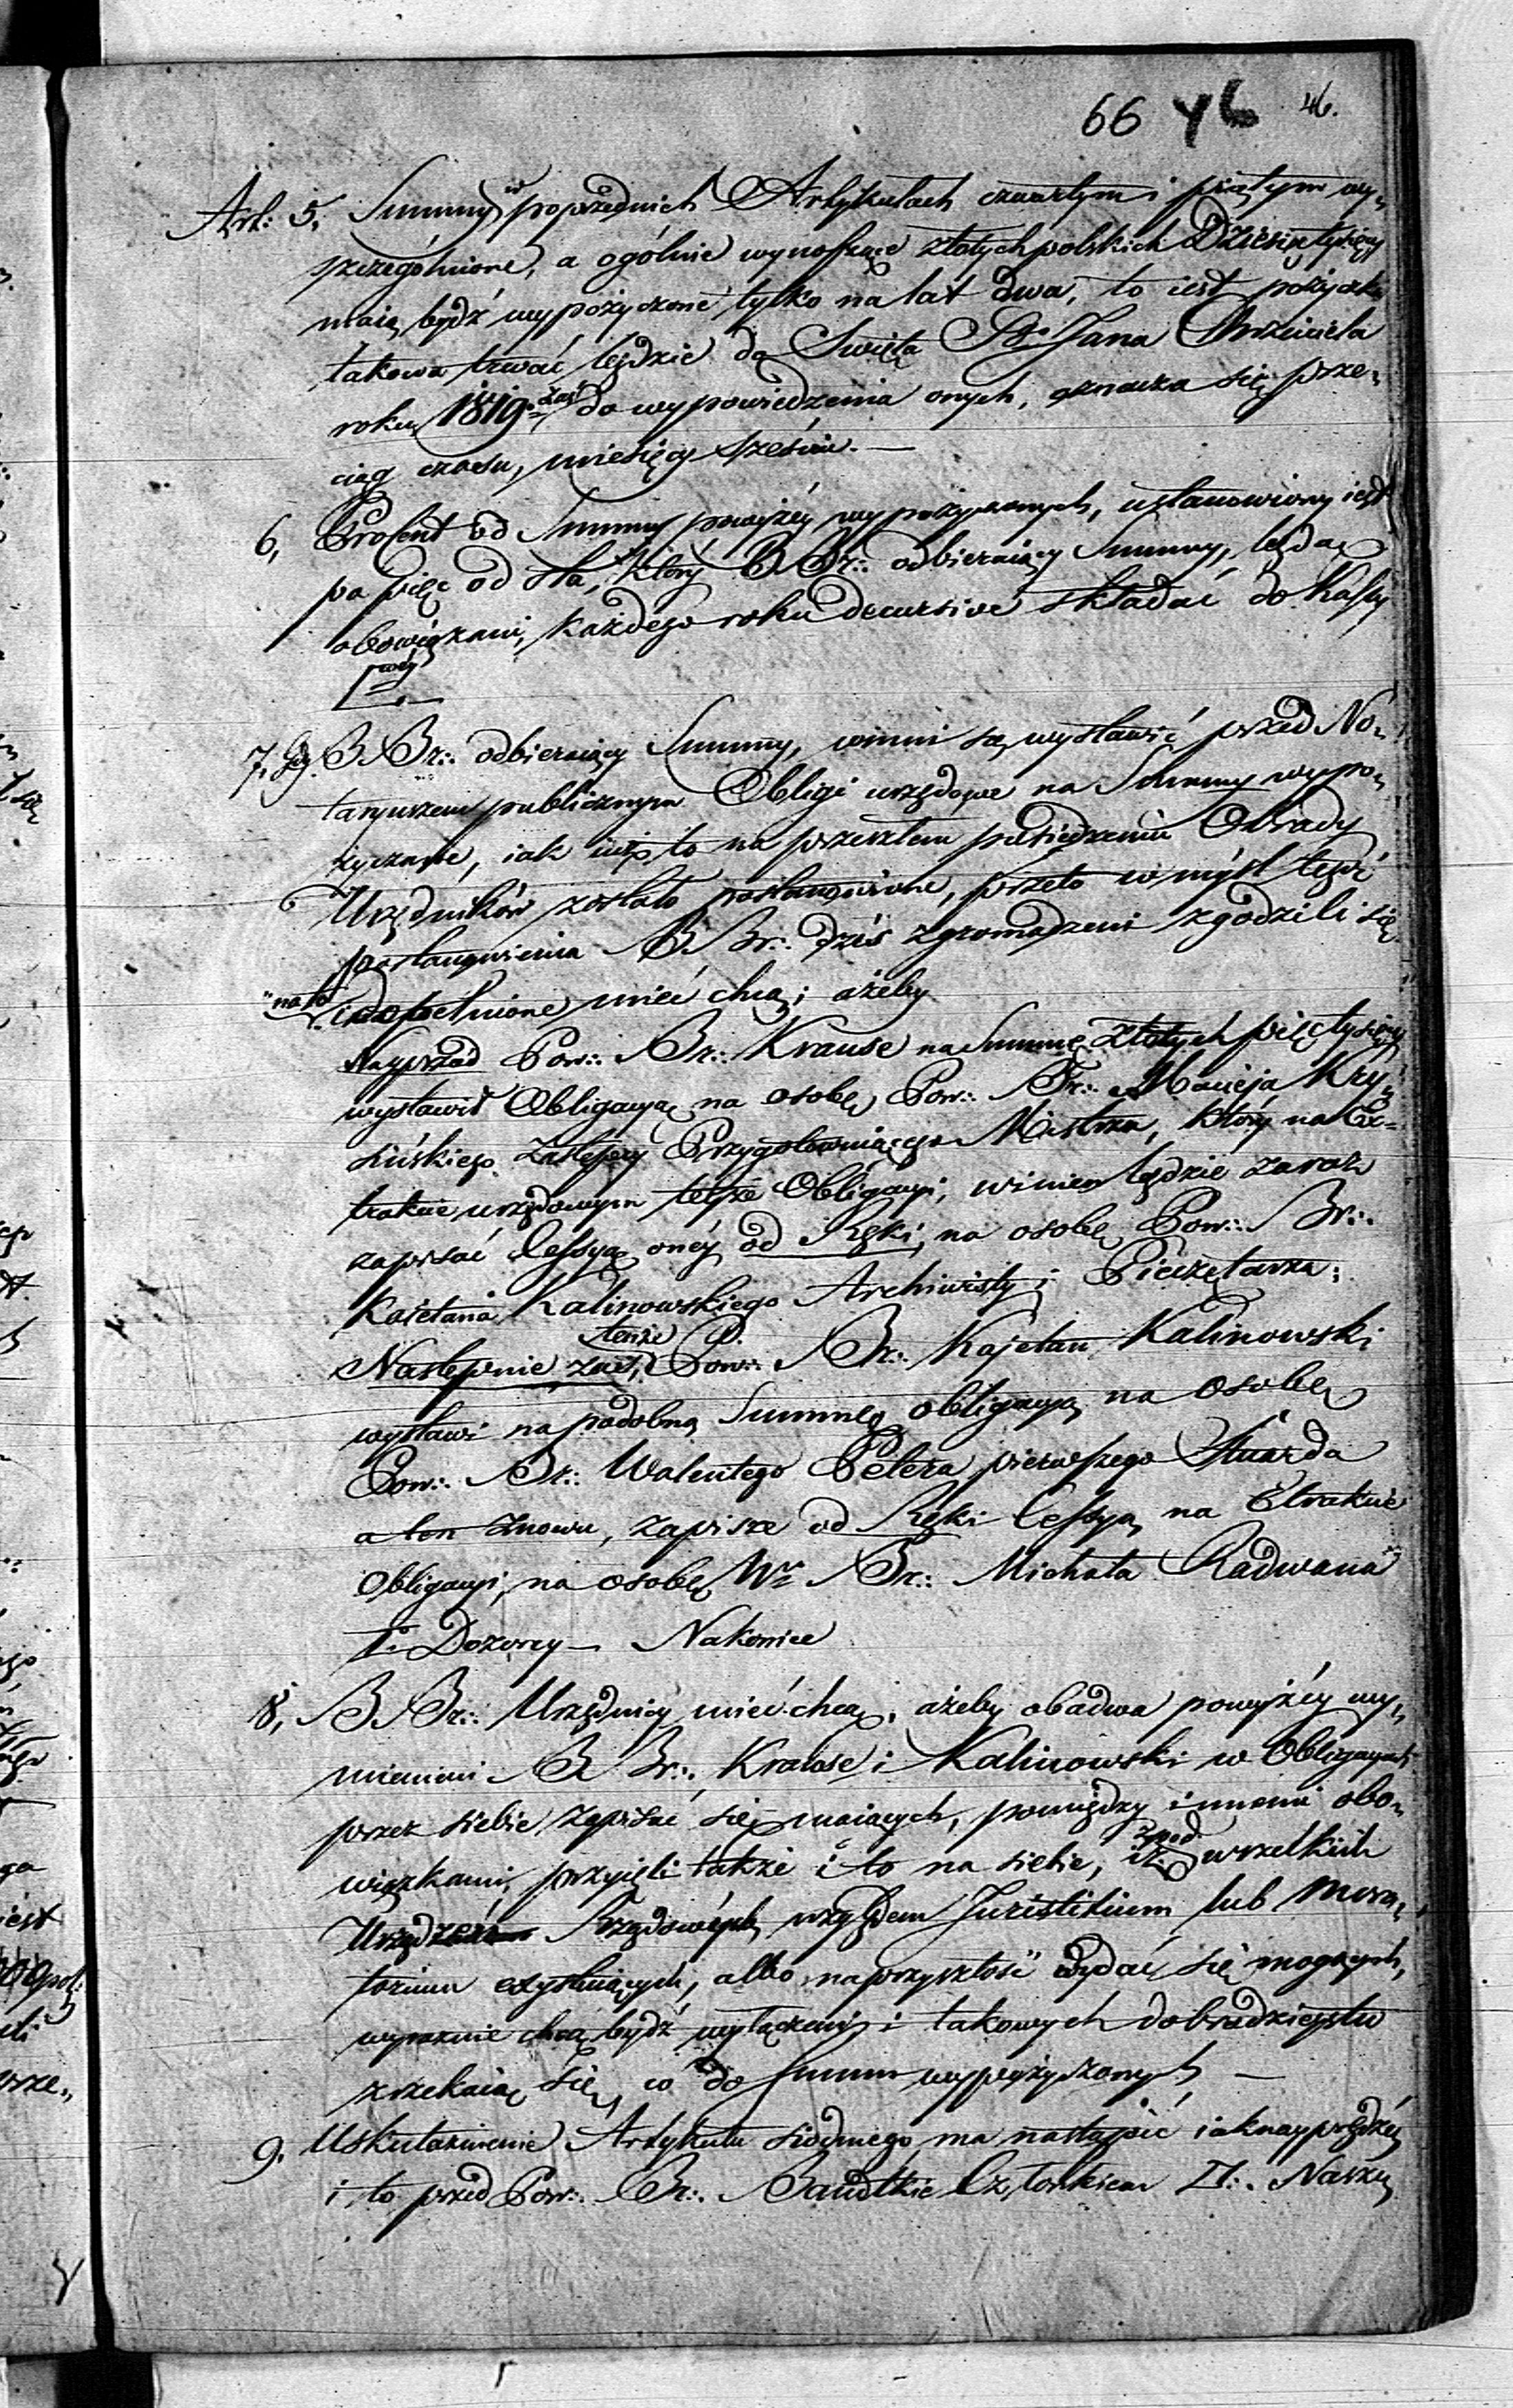 66 46 46.
Art: 5. Summy w poprzednich Artykułach czwartym i piątym wy„
szczegolnione, a ogólnie wynoszące złotych polskich Dziesięć tysięcy
maią bydź wypożyczone tylko na lat dwa, to iest pożyczka
takowa trwać będzie do Swięta Sgo Jana Chrzciciela
roku 1819. zaś do wypowiedzenia onych, oznacza się prze„
ciąg czasu, miesięcy sześciu. —
6, Procent od Summy powyżéy wypożyczonych, ustanowiony iest
po pięć od sta, który B Br∴ odbieraiący Summy, będą
obowiązani, każdego roku decursive składać do Kassy
7. Gdy B Br∴ odbieraiący Summy, winni są wystawić przed No„
taryuszem publicznym Obligi urzędowe na Summy wypo„
życzone, iak iuż to na przeszłem posiedzeniu Obrady
Urzędników zostało postanowione, przeto w myśl tegoż
postanowienia B Br∴ dziś zgromadzeni zgodzili się
"na to i dopełnione mieć chcą; ażeby
Nayprzód Pow∴ Br∴ Krause na Summę złotych pięć tysięcy
wystawił Obligacyą na osobę Pow∴ Br∴ Macieja Kry„
sińskiego Zastępcy Przygotowuiącego Mistrza, który na Ex=
trakcie urzędowym teyże Obligacyi, winien będzie zaraz
zapisać Cessyą onéy od Ręki, na osobę Pow∴ Br∴
Kaietana Kalinowskiego Archiwisty i Pieczętarza;
Następnie zaś, tenże Pow∴ Br∴ Kajetan Kalinowski
wystawi na podobną Summę obligacyą na osobę
Pow∴ Br∴ Walentego Petera pierwszego Stuarda
a ten znowu, zapisze od Ręki Cessyą na Extrakcie
Obligacyi, na osobę Wo Br∴ Michała Radwana
1o Dozorcy — Nakoniec
8, B Br∴ Urzędnicy mieć chcą, ażeby obadwa powyżéy wy„
mienieni B Br∴ Krause i Kalinowski w Obligacyach
przez siebie zapisać się maiących, pomiędzy innemi obo„
wiązkami, przyięli także i to na siebie, iż z pod wszelkich
Urządzeń Rządowych względem Juristitium lub Mora„
torium exystuiących, albo naprzyszłość wydać się mogących,
wyraznie chcą bydź wyłączeni i takowych dobrodzieystw
zrzekaią się, co do Summ wypożyczonych —
9. Uskutecznienie Artykułu siódmego ma nastąpić iaknayprędzéy
i to przed Pow∴ Br∴ Bandtkie Członkiem □∴ Naszéy